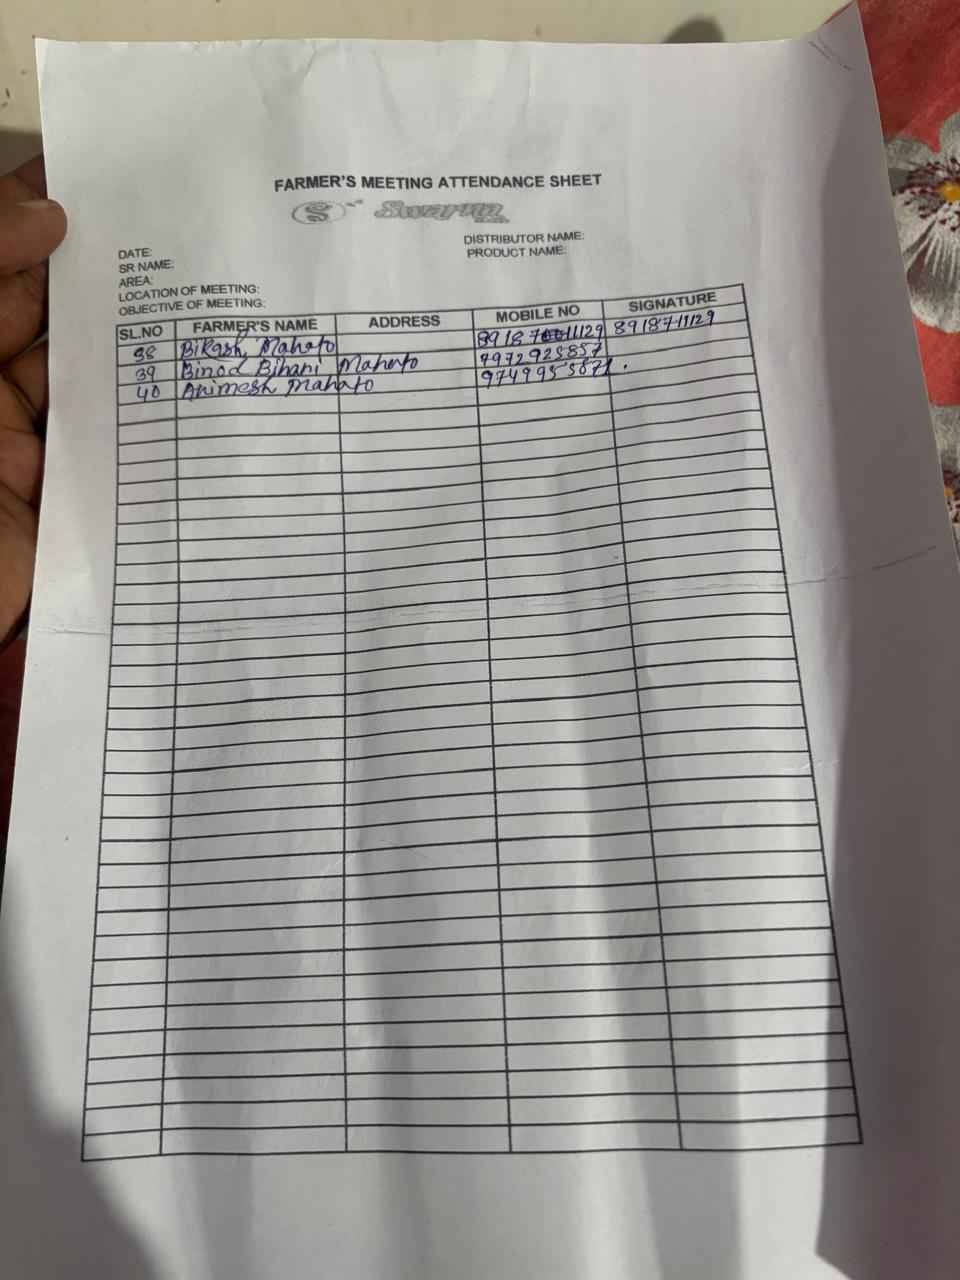 FARMER'S MEETING ATTENDANCE SHEET
S Swarna
DATE:
SR NAME:
AREA:
LOCATION OF MEETING:
OBJECTIVE OF MEETING:
DISTRIBUTOR NAME:
PRODUCT NAME:
SL.NO FARMER'S NAME ADDRESS MOBILE NO SIGNATURE
38 Bikash Mahato 8918711129
39 Binod Bihari Mahato
40 Animesh Mahato